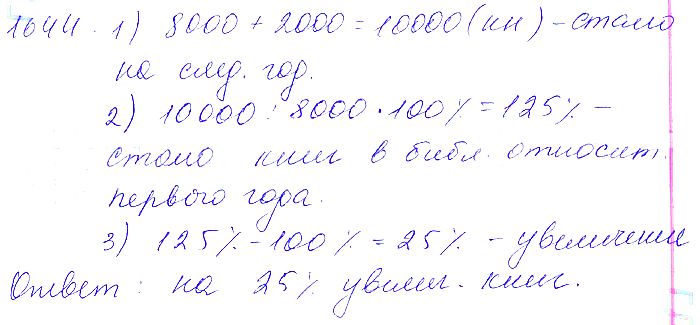 1644. 1) 8000 + 2000 = 10000 (кн) - стало
на след. год.
2) 10000 : 8000 · 100% = 125% -
стало книг в библ. относит.
первого года.
3) 125% - 100% = 25% - увеличение
Ответ: на 25% увелич. книг.